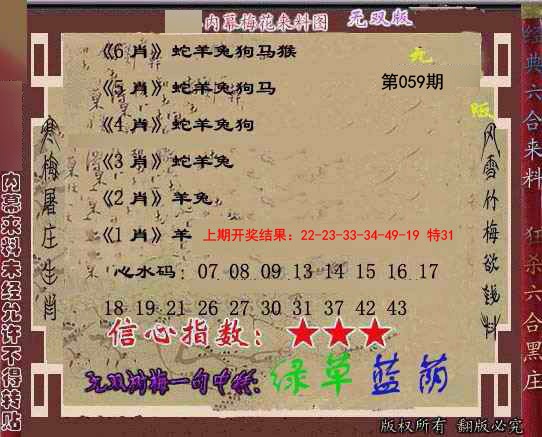 内幕梅花来料图 无双版
《6 肖》蛇羊兔狗马猴
《5 肖》蛇羊兔狗马
《4 肖》蛇羊兔狗
《3 肖》蛇羊兔
《2 肖》羊兔
《1 肖》羊
第059期
无
版
上期开奖结果: 22-23-33-34-49-19 特31
心水码: 07 08 09 13 14 15 16 17
18 19 21 26 27 30 31 37 42 43
信心指数: ★★★
无双浏梅一句中特: 绿草蓝荫
寒梅屠庄生肖
风雪竹梅欲钱料
内幕来料未经允许不得转贴
经典六合来料 狂杀六合黑庄
版权所有 翻版必究